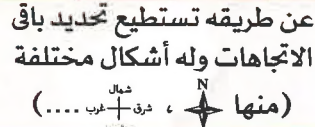 عن طريقه تستطيع تحديد باقى
الاتجاهات وله أشكال مختلفة
N
شمال
(منها ، شرق غرب ....)